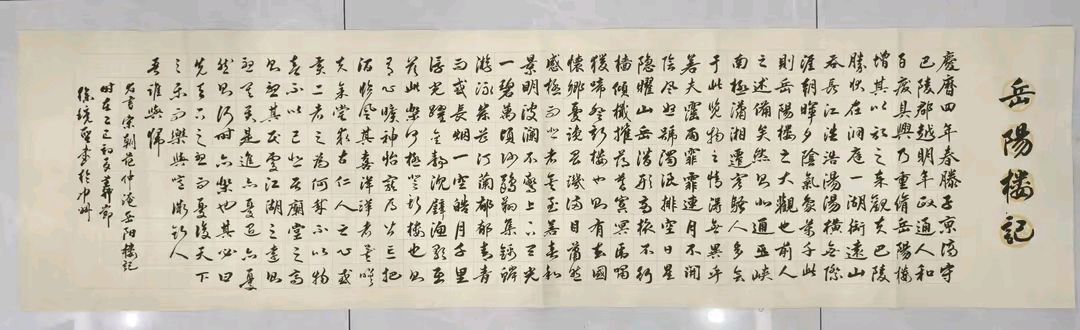 岳陽樓記
慶曆四年春滕子京謫守
巴陵郡越明年政通人和
百廢具興乃重脩岳陽樓
增其以記之予觀夫巴陵
勝狀在洞庭一湖銜遠山
吞長江浩浩湯湯橫無際
涯朝暉夕陰氣象萬千此
則岳陽樓之大觀也前人
之述備矣然則北通巫峽
南極瀟湘遷客騷人多會
于此覽物之情得無異乎
若夫霪雨霏霏連月不開
陰風怒號濁浪排空日星
隱曜山岳潛形商旅不行
檣傾檝摧薄暮冥冥虎嘯
猨啼登斯樓也則有去國
懷鄉憂讒畏譏滿目蕭然
感極而悲者矣至若春和
景明波瀾不驚上下天光
一碧萬頃沙鷗翔集錦鱗
游泳岸芷汀蘭郁郁青青
而或長烟一空皓月千里
浮光躍金靜沉璧漁歌互
答此樂何極登斯樓也則
有心曠神怡寵辱皆忘把
酒臨風其喜洋洋者矣嗟
夫予嘗求古仁人之心或
異二者之為何哉不以物
喜不以己悲居廟堂之高
則憂其民處江湖之遠則
憂其君是進亦憂退亦憂
然則何時亦樂也其必曰
先天下之憂而憂後天下
之樂而樂與噫微斯人
吾誰與歸
右書宋朝范仲淹岳陽樓記
時在乙巳初夏節
徐書於中州